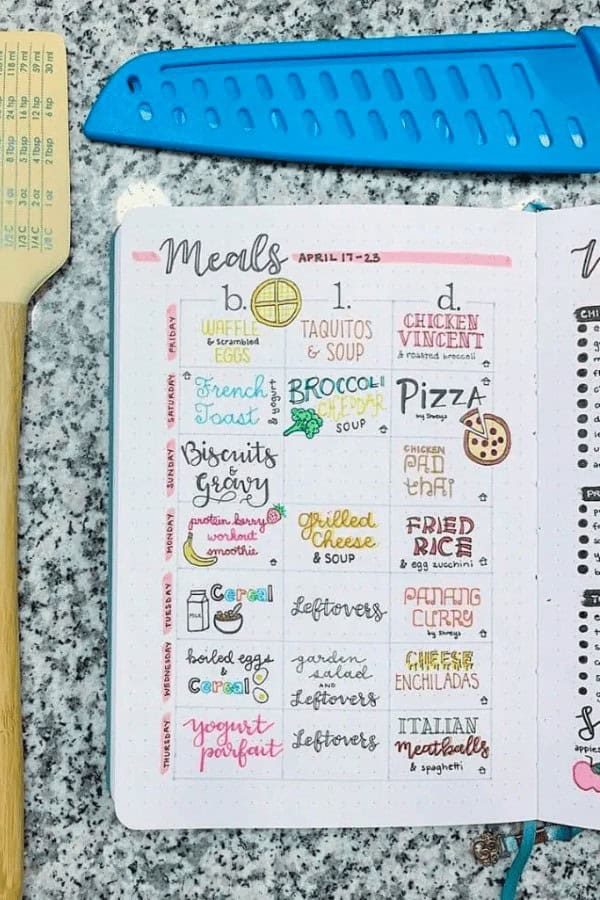 1/2 C 4 oz 8 Tbsp 24 tsp 118 ml
1/3 C 3 oz 5 Tbsp 16 tsp 79 ml
1/4 C 2 oz 4 Tbsp 12 tsp 59 ml
1/8 C 1 oz 2 Tbsp 6 tsp 30 ml
Meals APRIL 17-23
b. l. d.
FRIDAY
WAFFLE
& scrambled
EGGS
TAQUITOS
& SOUP
CHICKEN
VINCENT
& roasted broccoli
SATURDAY
French
Toast
& yogurt
BROCCOLI
CHEDDAR
SOUP
PIZZA
by Shreya
SUNDAY
Biscuits
&
Gravy
CHICKEN
PAD
thai
MONDAY
protein berry
workout
smoothie
grilled
cheese
& SOUP
FRIED
RICE
& egg zucchini
TUESDAY
Cereal
MILK
Leftovers
PANANG
CURRY
by Shreya
WEDNESDAY
boiled eggs
&
Cereal
garden
salad
AND
Leftovers
CHEESE
ENCHILADAS
THURSDAY
yogurt
parfait
Leftovers
ITALIAN
Meatballs
& spaghetti